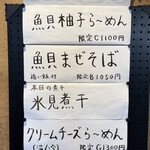 魚貝柚子ら〜めん
限定C1100円
魚貝まぜそば
追い飯付 限定B1050円
本日の煮干
氷見煮干
クリームチーズら〜めん
限定G1300円